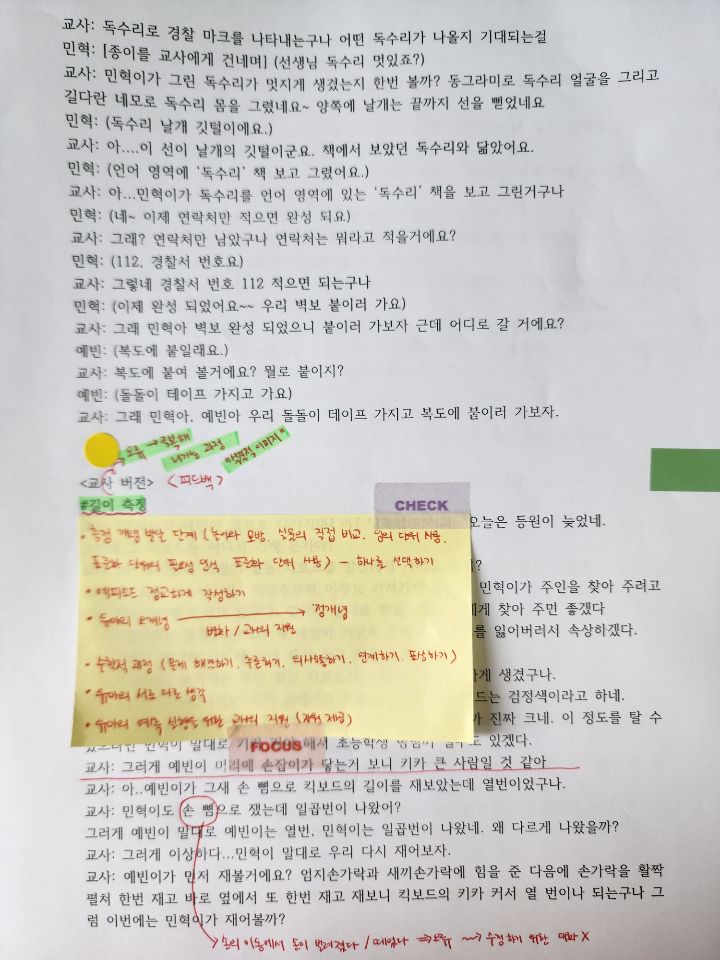 교사: 독수리로 경찰 마크를 나타내는구나 어떤 독수리가 나올지 기대되는걸
민혁: [종이를 교사에게 건네며] (선생님 독수리 멋있죠?)
교사: 민혁이가 그린 독수리가 멋지게 생겼는지 한번 볼까? 동그라미로 독수리 얼굴을 그리고
길다란 네모로 독수리 몸을 그렸네요~ 양쪽에 날개는 끝까지 선을 뻗었네요
민혁: (독수리 날개 깃털이에요.)
교사: 아....이 선이 날개의 깃털이군요. 책에서 보았던 독수리와 닮았어요.
민혁: (언어 영역에 '독수리' 책 보고 그렸어요.)
교사: 아...민혁이가 독수리를 언어 영역에 있는 '독수리' 책을 보고 그린거구나
민혁: (네~ 이제 연락처만 적으면 완성 되요.)
교사: 그래? 연락처만 남았구나 연락처는 뭐라고 적을거에요?
민혁: (112, 경찰서 번호요)
교사: 그렇네 경찰서 번호 112 적으면 되는구나
민혁: (이제 완성 되었어요~~ 우리 벽보 붙이러 가요)
교사: 그래 민혁아 벽보 완성 되었으니 붙이러 가보자 근데 어디로 갈 거에요?
예빈: (복도에 붙일래요.)
교사: 복도에 붙여 볼거에요? 뭘로 붙이지?
예빈: (돌돌이 테이프 가지고 가요)
교사: 그래 민혁아, 예빈아 우리 돌돌이 데이프 가지고 복도에 붙이러 가보자.
오류 → 극복해
나가는 과정
<교사 버전> <피드백>
#길이 측정
CHECK
오늘은 등원이 늦었네.
• 측정 개념 발달 단계 (놀이와 모방, 실물의 직접 비교, 임의 단위 사용,
표준화 단위의 필요성 인식, 표준화 단위 사용) - 하나를 선택하기
민혁이가 주인을 찾아 주려고
• 에피소드 정교하게 작성하기
에게 찾아 주면 좋겠다
• 유아의 오개념 → 정개념
를 잃어버려서 속상하겠다.
변화 / 교사의 지원
• 수학적 과정 (문제 해결하기, 추론하기, 의사소통하기, 연계하기, 표상하기)
가게 생겼구나.
• 유아의 서로 다른 생각
드는 검정색이라고 하네.
• 유아의 예측 실행을 위한 교사의 지원 (자원 제공)
가 진짜 크네. 이 정도를 탈 수
FOCUS
교사: 그러게 예빈이 머리에 손잡이가 닿는거 보니 키카 큰 사람일 것 같아
교사: 아..예빈이가 그새 손 뼘으로 킥보드의 길이를 재보았는데 열번이었구나.
교사: 민혁이도 손 뼘으로 쟀는데 일곱번이 나왔어?
그러게 예빈이 말대로 예빈이는 열번, 민혁이는 일곱번이 나왔네. 왜 다르게 나왔을까?
교사: 그러게 이상하다...민혁이 말대로 우리 다시 재어보자.
교사: 예빈이가 먼저 재볼거에요? 엄지손가락과 새끼손가락에 힘을 준 다음에 손가락을 활짝
펼쳐 한번 재고 바로 옆에서 또 한번 재고 재보니 킥보드의 키카 커서 열 번이나 되는구나 그
럼 이번에는 민혁이가 재어볼까?
→ 손의 이동에서 손이 벌려졌다 / 떼었다 ⇒ 오류 ~> 수정하기 위한 대화 X